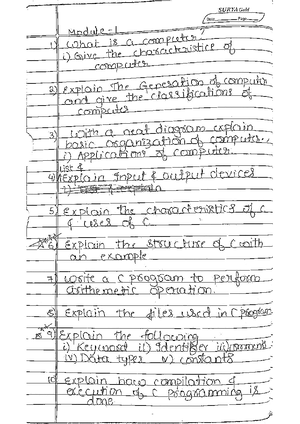 SURYA Gold
Date Page
Module - 1
1) What is a computer?
i) Give the characteristics of
computer
2) Explain The Generation of computer
and give the classifications of
computer
3) With a neat diagram explain
basic organization of computer.
i) Applications of computer.
List &
4) Explain Input & output devices
5) Explain the characteristics of C
& uses of C.
6) Explain the structure of C with
an example
7) Write a C program to perform
arithemetic operation.
8) Explain the files used in C program
9) Explain the following
i) Keyword ii) Identifier iii)
iv) Data types v) constants
10) Explain how compilation &
execution of C programming is
done